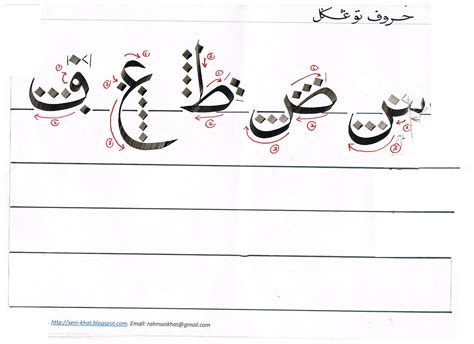 حروف توڠݢل
س ص ط ع ق
http://seni-khat.blogspot.com. Email: rahmankhat@gmail.com